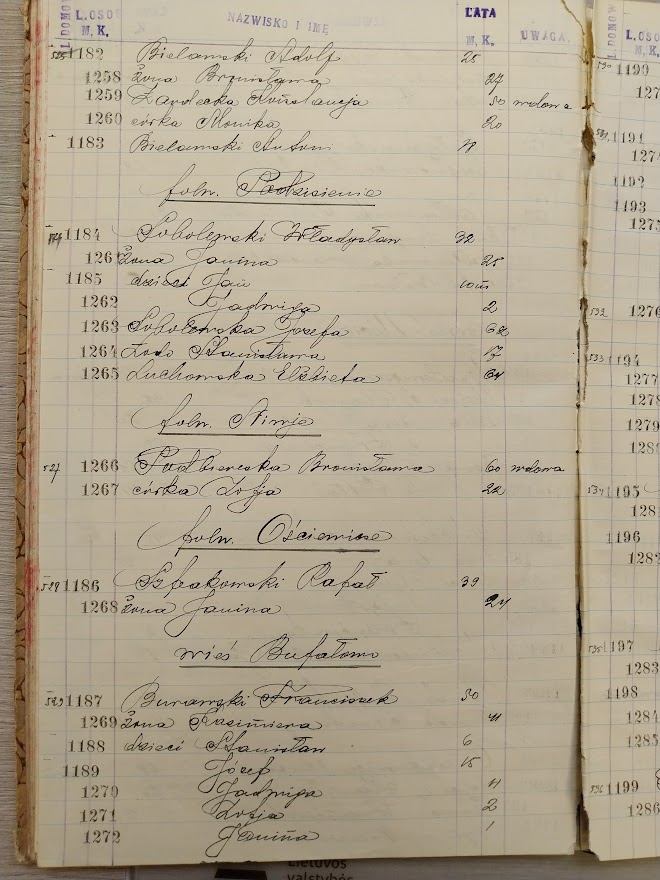 L. DOMÓW L. OSO NAZWISKO I IMĘ LATA
M. K. M. K. UWAGA.
525 1182 Bielawski Adolf 25
1258 żona Bronisława 27
1259 Konstancja 50 wdowa
1260 córka Monika 20
1183 Bielawski Antoni
folw.
1184 Sobolewski Władysław 32
126 żona Janina 25
1185 dzieci Jan
1262 Jadwiga 2
1263 Sobolewska Józefa 62
1264 Stanisława 17
1265 Luchowska Elżbieta 64
folw.
527 1266 Podbereska Bronisława 60 wdowa
1267 córka Zofja 22
folw. Ościenisze
528 1186 Rafał 39
1268 żona Janina 24
wieś Bufałowo
529 1187 Burawski Franciszek 50
1269 żona Kazimiera 41
1188 dzieci Stanisław 6
1189 Józef 15
1270 Jadwiga 11
1271 Zofja 2
1272 Janina 1
L. DOMÓW L. OSO
M. K.
530 1190
127
531 1191
127
1192
1193
1275
532 1276
533 1194
1277
1278
1279
128
534 1195
128
1196
1282
535 1197
1283
1198
1284
1285
536 1199
1286
Lietuvos
valstybės